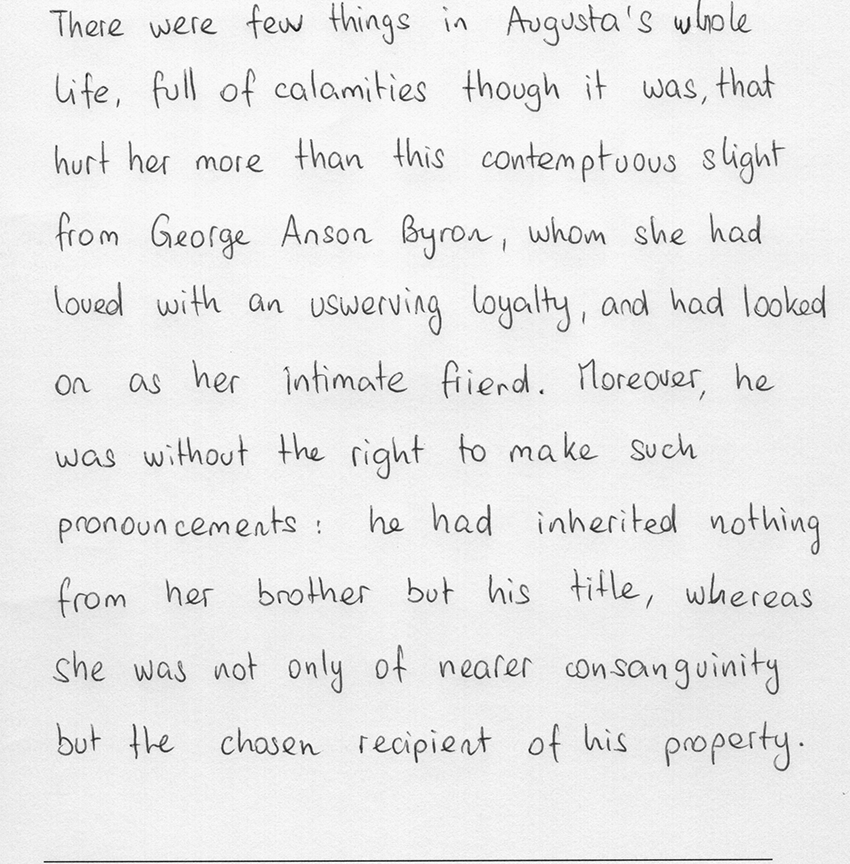 There were few things in Augusta's whole
life, full of calamities though it was, that
hurt her more than this contemptuous slight
from George Anson Byron, whom she had
loved with an uswerving loyalty, and had looked
on as her intimate friend. Moreover, he
was without the right to make such
pronouncements : he had inherited nothing
from her brother but his title, whereas
she was not only of nearer consanguinity
but the chosen recipient of his property.